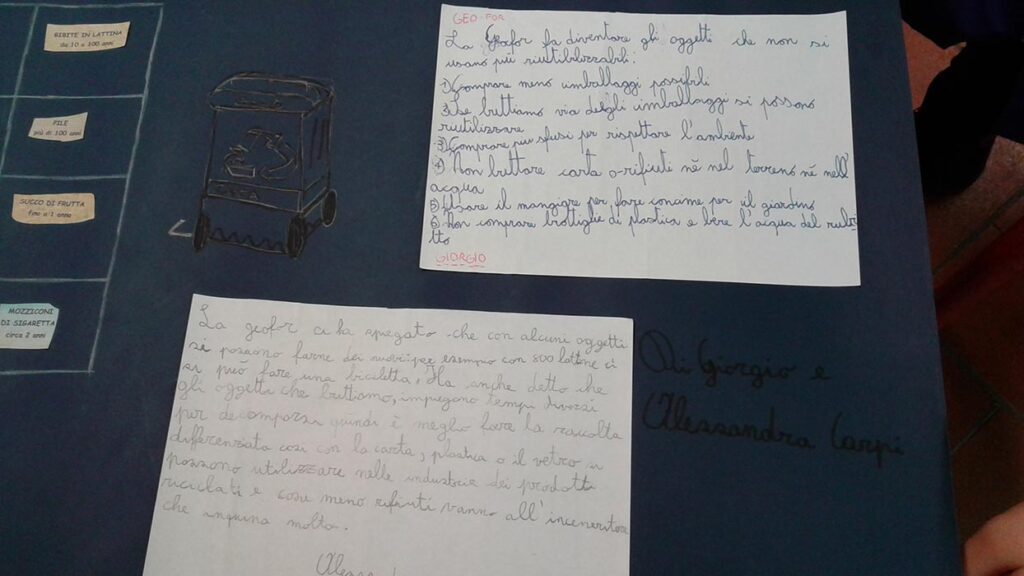 BIBITE IN LATTINA
da 10 a 100 anni
PILE
più di 100 anni
SUCCO DI FRUTTA
fino a 1 anno
MOZZICONI
DI SIGARETTA
circa 2 anni
GEO FOR
La Geofor fa diventare gli oggetti che non si
usano più riutibilizzabili:
1) Comprare meno imballaggi possibili
2) Se buttiamo via delgli imballaggi si possono
riutilizzare
3) Comprare più sfusi per rispettare l'ambiente
4) Non buttare carta o rifiuti né nel terreno né nell'
acqua
5) Usare il mangiare per fare concime per il giardino
6. Non comprare brottiglie di plastica e bere l'acqua del rubi-
tto
GIORGIO
La geofor ci ha spegato che con alcuni oggetti
si possono farne dei nuovi per esempio con 800 lattine ci
si può fare una bicicletta. Ha anche detto che
gli oggetti che buttiamo, impiegano tempi diversi
per decomporsi quindi è meglio fare la raccolta
differenziata così con la carta, plastica o il vetro si
possono utilizzare nelle industrie dei prodotti
riciclati e così meno rifiuti vanno all'inceneritore
che inquina molto.
Di Giorgio e
Alessandra Carpi